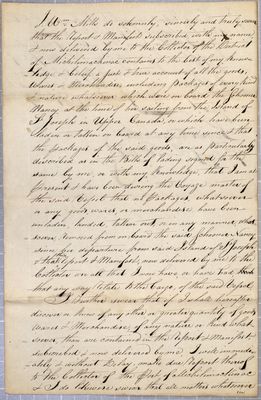 I Wm Mills do solemnly, sincerely and truly swear
that the Report & Manifest subscribed with my name
& now delivered by me to the Collector of the District
of Michilimackinac contains to the best of my know-
ledge & belief a just & true account of all the goods,
Wares & Merchandise, including packages of every kind
& nature whatsoever which were on board the Schooner
Nancy at the time of her sailing from the Island of
St Joseph in Upper Canada or which have been
laden or taken on board at any time since & that
the packages of the said goods, are as particularly
described as in the Bills of lading signed for the
same by me, or with my knowledge, that I am at
present & have been during the Voyage master of
the said Vessel that no Packages whatsoever
or any goods wares or merchandise have been
unladen landed, taken out or in any manner what-
soever removed from on board the said Schooner Nancy
since her departure from said Island of St Joseph
& that Report & Manifest, now delivered by me to the
Collector are all that I now have or have had
that any way relate to the Cargo of the said Vessel
I further swear that if I shall hereafter
discover or know of any other or greater quantity of goods
Wares & Merchandise of any nature or kind what-
soever, than are contained in the Report & Manifest
subscribed & now delivered by me I will immedi-
ately & without Delay make due Report thereof
to the Collector of the Port of Michilimackinac
& I do likewise swear that all matters whatsoever